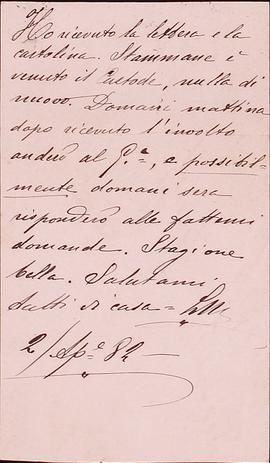 Ho ricevuto la lettera e la
cartolina. Stammane è
venuto il Custode, nulla di
nuovo. Domani mattina
dopo ricevuto l'involto
anderò al G.e, e possibil-
mente domani sera
risponderò alle fattemi
domande. Stagione
bella. Salutami
tutti di casa =
2/Ap.e 82 —